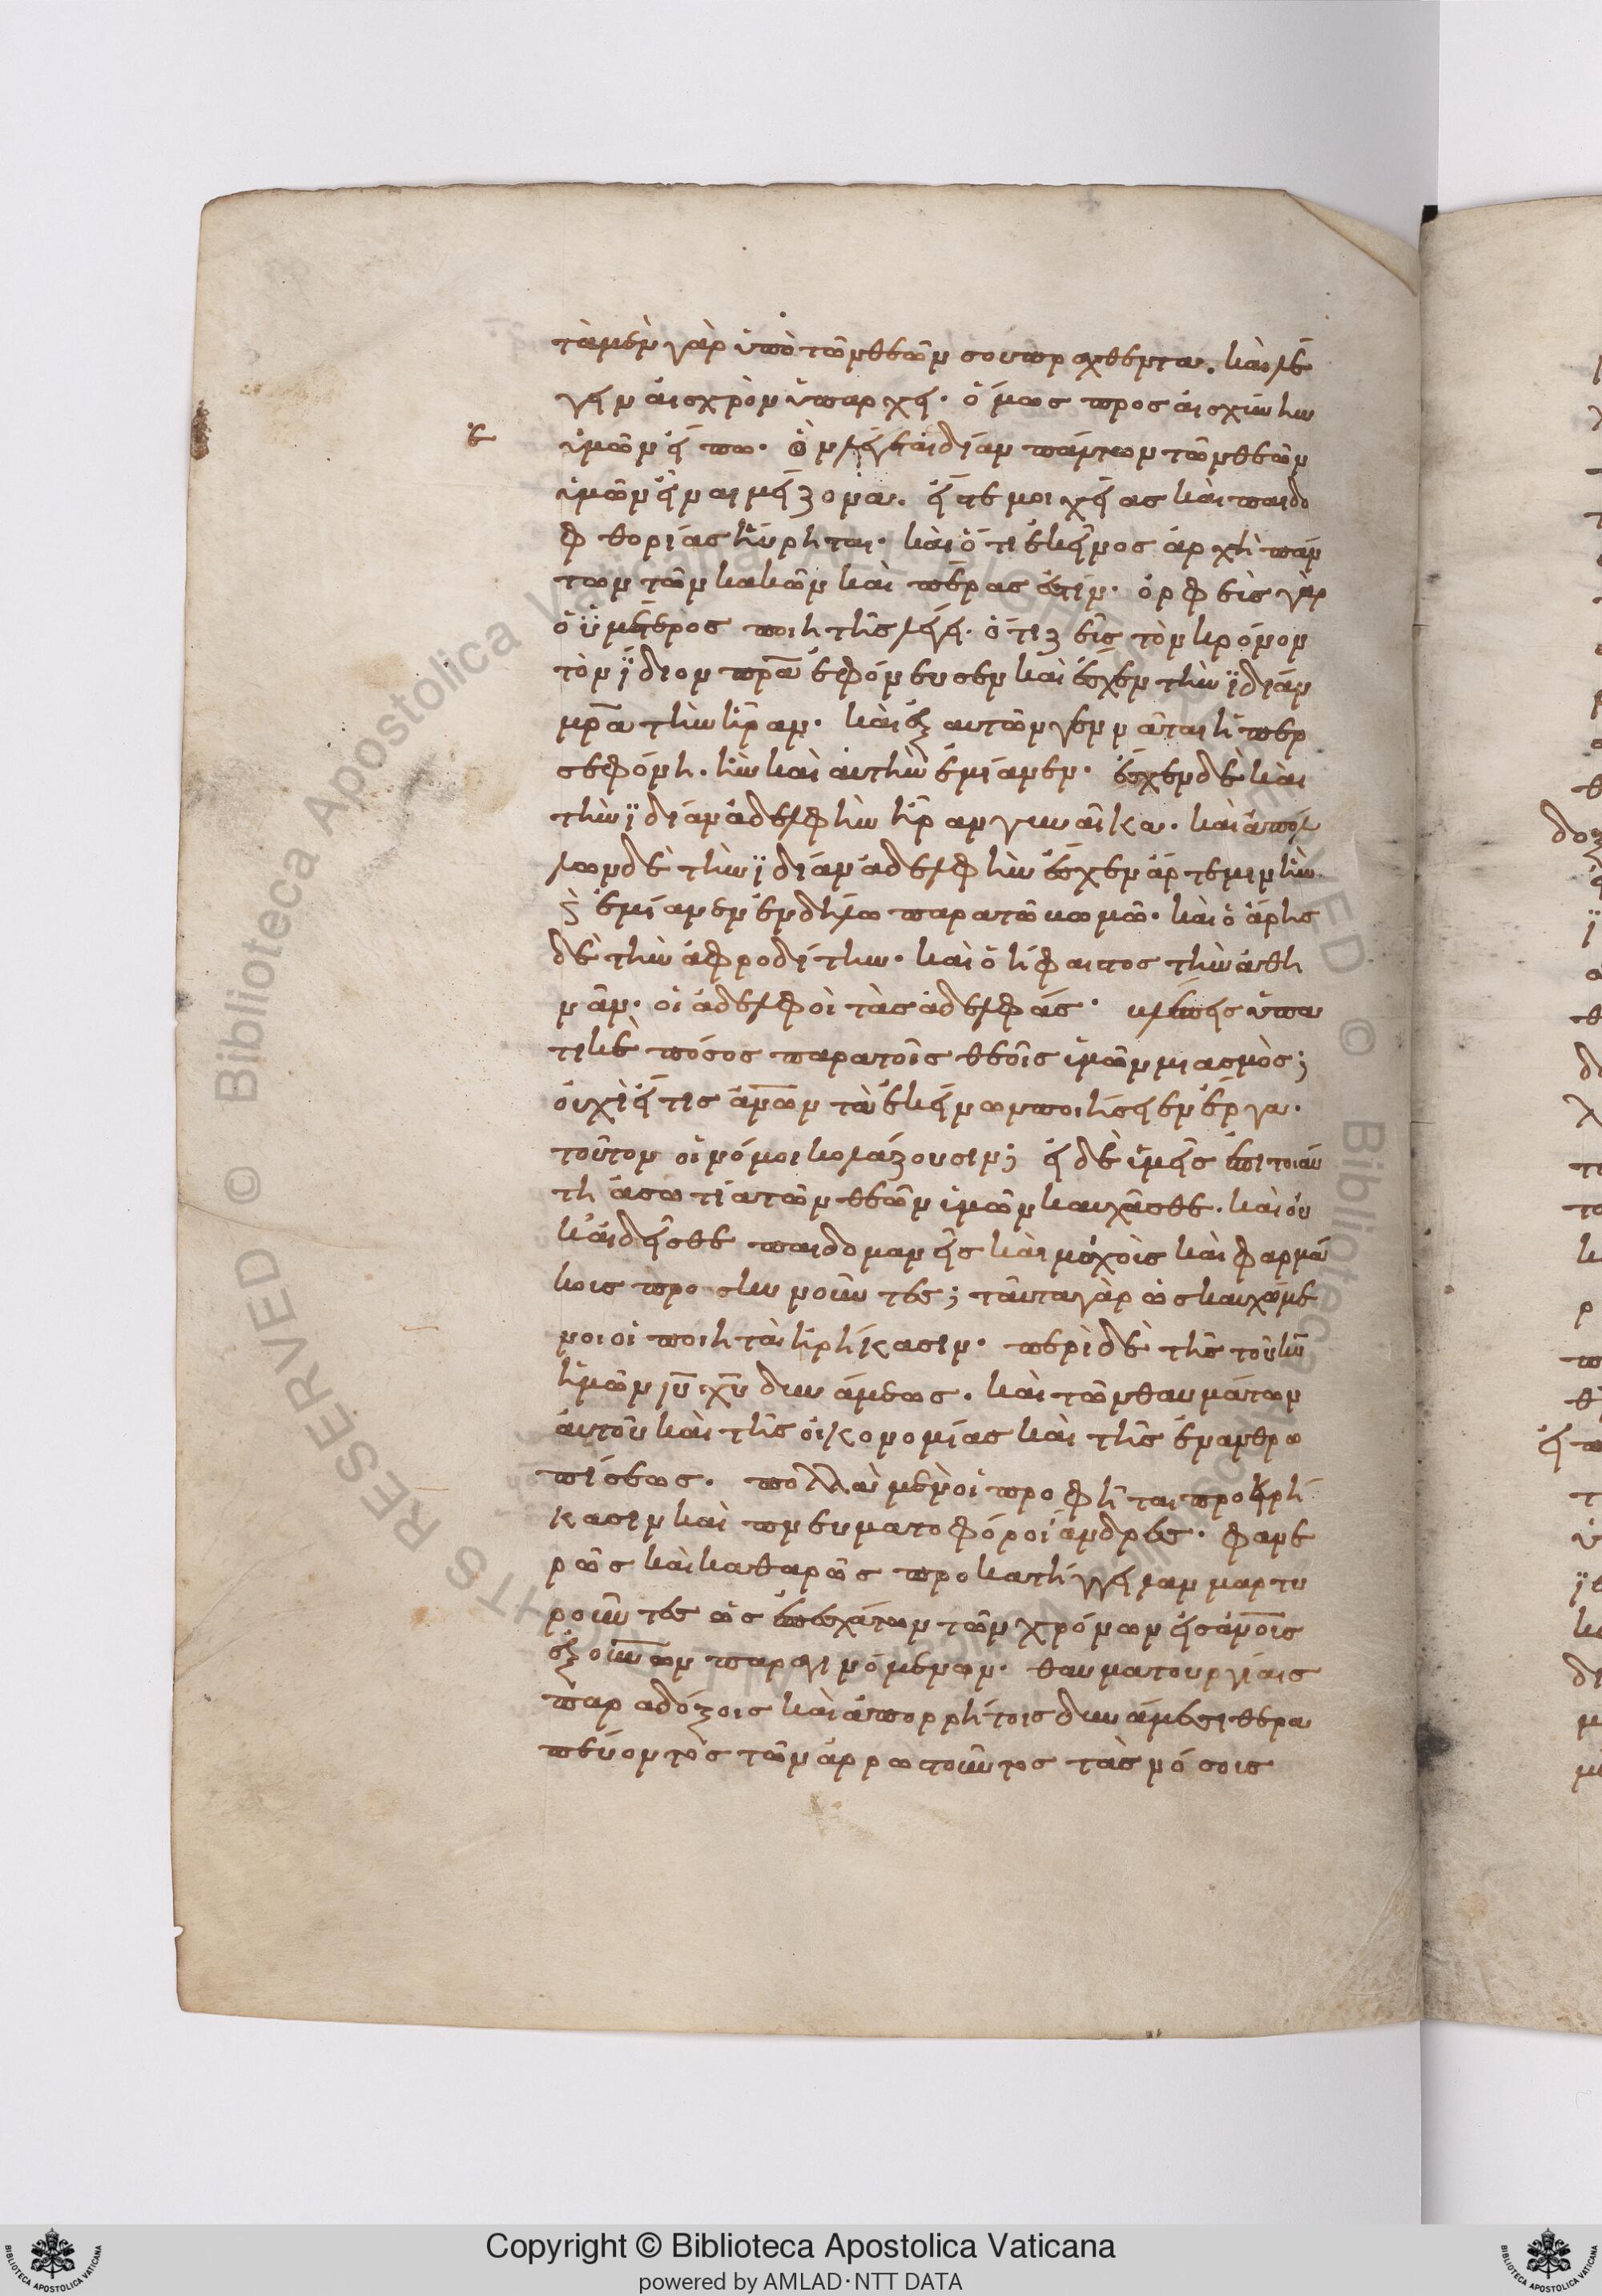 τὰ μὲν γὰρ ὑπὸ τῶν θεῶν σου πραχθεντα. καὶ λέ
γειν αἰσχρὸν ὑπαρχει. ὅμως προς αἰσχύνην
ὑμῶν εἴπω. ὃν λέγεται δίαν πάντων τῶν θεῶν
ὑμῶν εἶναι μείζονα. εἴτε μοιχείας καὶ παιδο
φθορίας ηὕρηται. καὶ ὅτι ἐκεῖνος ἀρχὴ πάν
των τῶν κακῶν καὶ πέρας ἐστίν. ὀρφεὺς γὰρ
ὁ ὑμέτερος ποιητῆς λέγει. ὅτι ζεῦς τὸν κρόνον
τὸν ἴδιον πρα ἐφόνευσεν καὶ ἔσχεν τὴν ϊδιάν
μρα τὴν ἥραν. καὶ ἐξ αυτῶν γεννᾶται ἡ περ
σεφόνη. ἣν καὶ αὐτὴν ἐμίανεν. ἔσχεν δὲ καὶ
τὴν ϊδιάν ἀδελφὴν ἥραν γυναῖκα. καὶ ἀπόλ
λων δὲ τὴν ϊδιάν ἀδελφὴν ἔσχεν ἄρτεμιν ἣν
ἐμίανεν ἐν δήλω παρα τῶ ναῶ. καὶ ὁ ἄρης
δὲ τὴν ἀφροδίτην. καὶ ὁ ἥφαιστος τὴν ἀθη
νᾶν. οἱ ἀδελφοὶ τὰς ἀδελφάς. βλέπεις ὕπα
τικὲ πόσος παρα τοῖς θεοῖς ὑμῶν μιασμὸς;
οὐχὶ εἴτις ἀνων τὰ ἐκείνων ποιήσειεν ἔργα.
τοῦτον οἱ νόμοι κολάζουσιν; εἰ δὲ ὑμεῖς ἐπι τοιαύ
τη ἀσωτία τῶν θεῶν ὑμῶν καυχᾶσθε. καὶ οὐ
κ αἰδεῖσθε παιδομανεῖς καὶ μοιχοὶς καὶ φαρμα
κοις προσκυνοῦντες; ταῦτα γὰρ ὡς καυχώμε
νοι οἱ ποιηταὶ ἡρήκασιν. περὶ δὲ τῆς τοῦ κυ
ἡμῶν ιυ χυ δυνάμεως. καὶ τῶν θαυμάτων
αὐτοῦ καὶ τῆς οἰκονομίας καὶ τῆς ἐνανθρω
πίσεως. πολλὰ μὲν οἱ προφῆται προηρή
κασιν καὶ πνευματοφόροι ἄνδρες. φανε
ρῶς καὶ καθαρῶς προκατήγγειλαν μαρτυ
ροῦντες ὡς ἐπ ἐσχάτων τῶν χρόνων εἰς ἀνοις
ἐξ οὐνων παραγινόμενον. θαυματουργίαις
παραδόξοις καὶ ἀπορρήτοις δυνάμεσι θερα
πεύοντος τῶν ἀρρωστοῦντος τὰς νόσοις